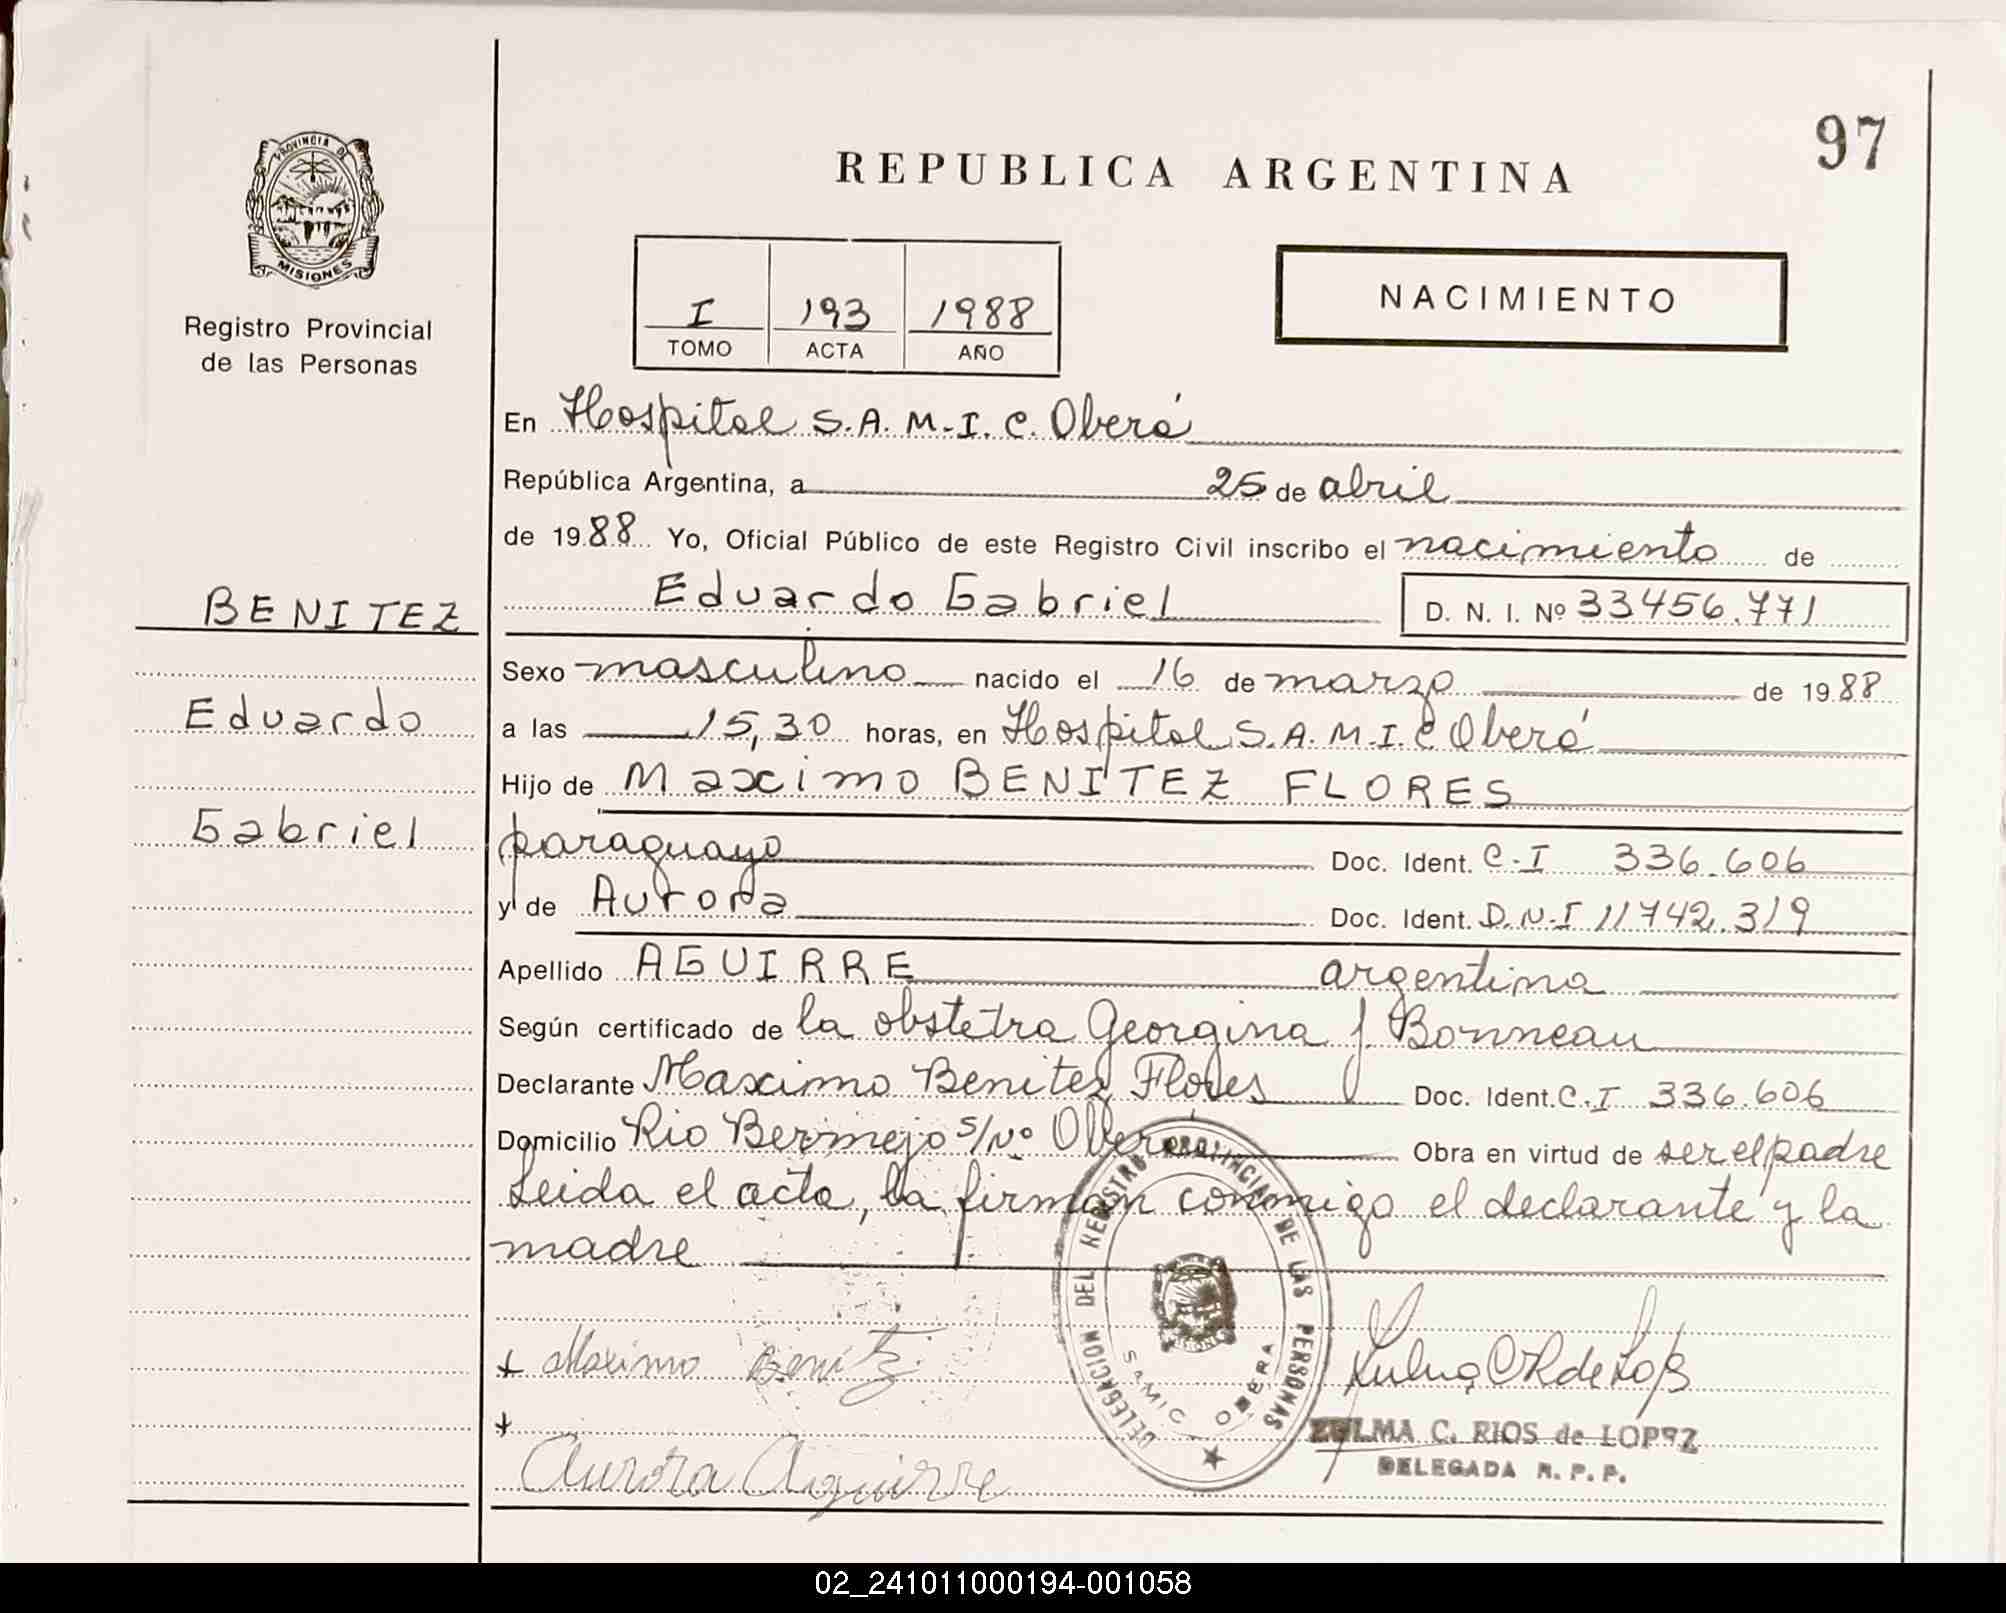 97
PROVINCIA DE
MISIONES
Registro Provincial
de las Personas
REPUBLICA ARGENTINA
I 193 1988
TOMO ACTA AÑO
NACIMIENTO
En Hospital S.A.M.I.C. Oberá
República Argentina, a 25 de abril
de 1988 Yo, Oficial Público de este Registro Civil inscribo el nacimiento de
BENITEZ
Eduardo Gabriel D. N. I. Nº 33456.771
Sexo masculino nacido el 16 de marzo de 1988
Eduardo
a las 15,30 horas, en Hospital S.A.M.I.C Oberá
Hijo de Maximo BENITEZ FLORES
Gabriel
paraguayo Doc. Ident. C.I 336.606
y de Aurora Doc. Ident. D.N.I 11742.319
Apellido AGUIRRE argentina
Según certificado de la obstetra Georgina J. Bonneau
Declarante Maximo Benitez Flores Doc. Ident. C.I 336.606
Domicilio Rio Bermejo s/Nº Oberá Obra en virtud de ser el padre
Leida el acta, la firman conmigo el declarante y la
madre
DELEGACION DEL REGISTRO PROVINCIAL DE LAS PERSONAS
SAMIC OBERA
+ Maximo Benitz
+
Aurora Aguirre
ZULMA C. RIOS de LOPEZ
DELEGADA R. P. P.
02_241011000194-001058